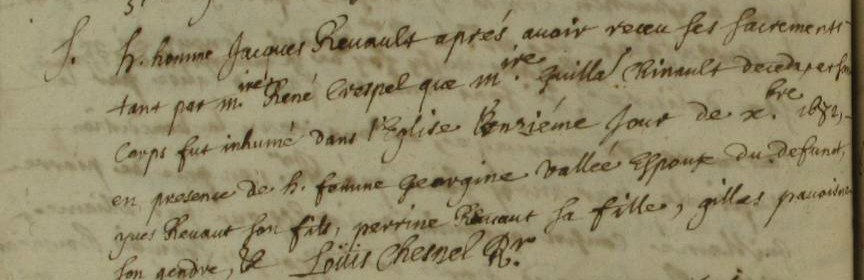 S. h. homme Jacques Renault aprés avoir receu ses sacrements
tant par m.ire René Crespel que m.ire Guilla. Rinault deceda, et son
Corps fut inhumé dans l'Eglise onziéme Jour de x.bre 1672,
en presence de h. femme Georgine Vallée Espouse du defunct,
yves Renaut son fils, perrine Renaut sa fille, gilles pavoisne
son gendre, & Loüis Chesnel Rr.